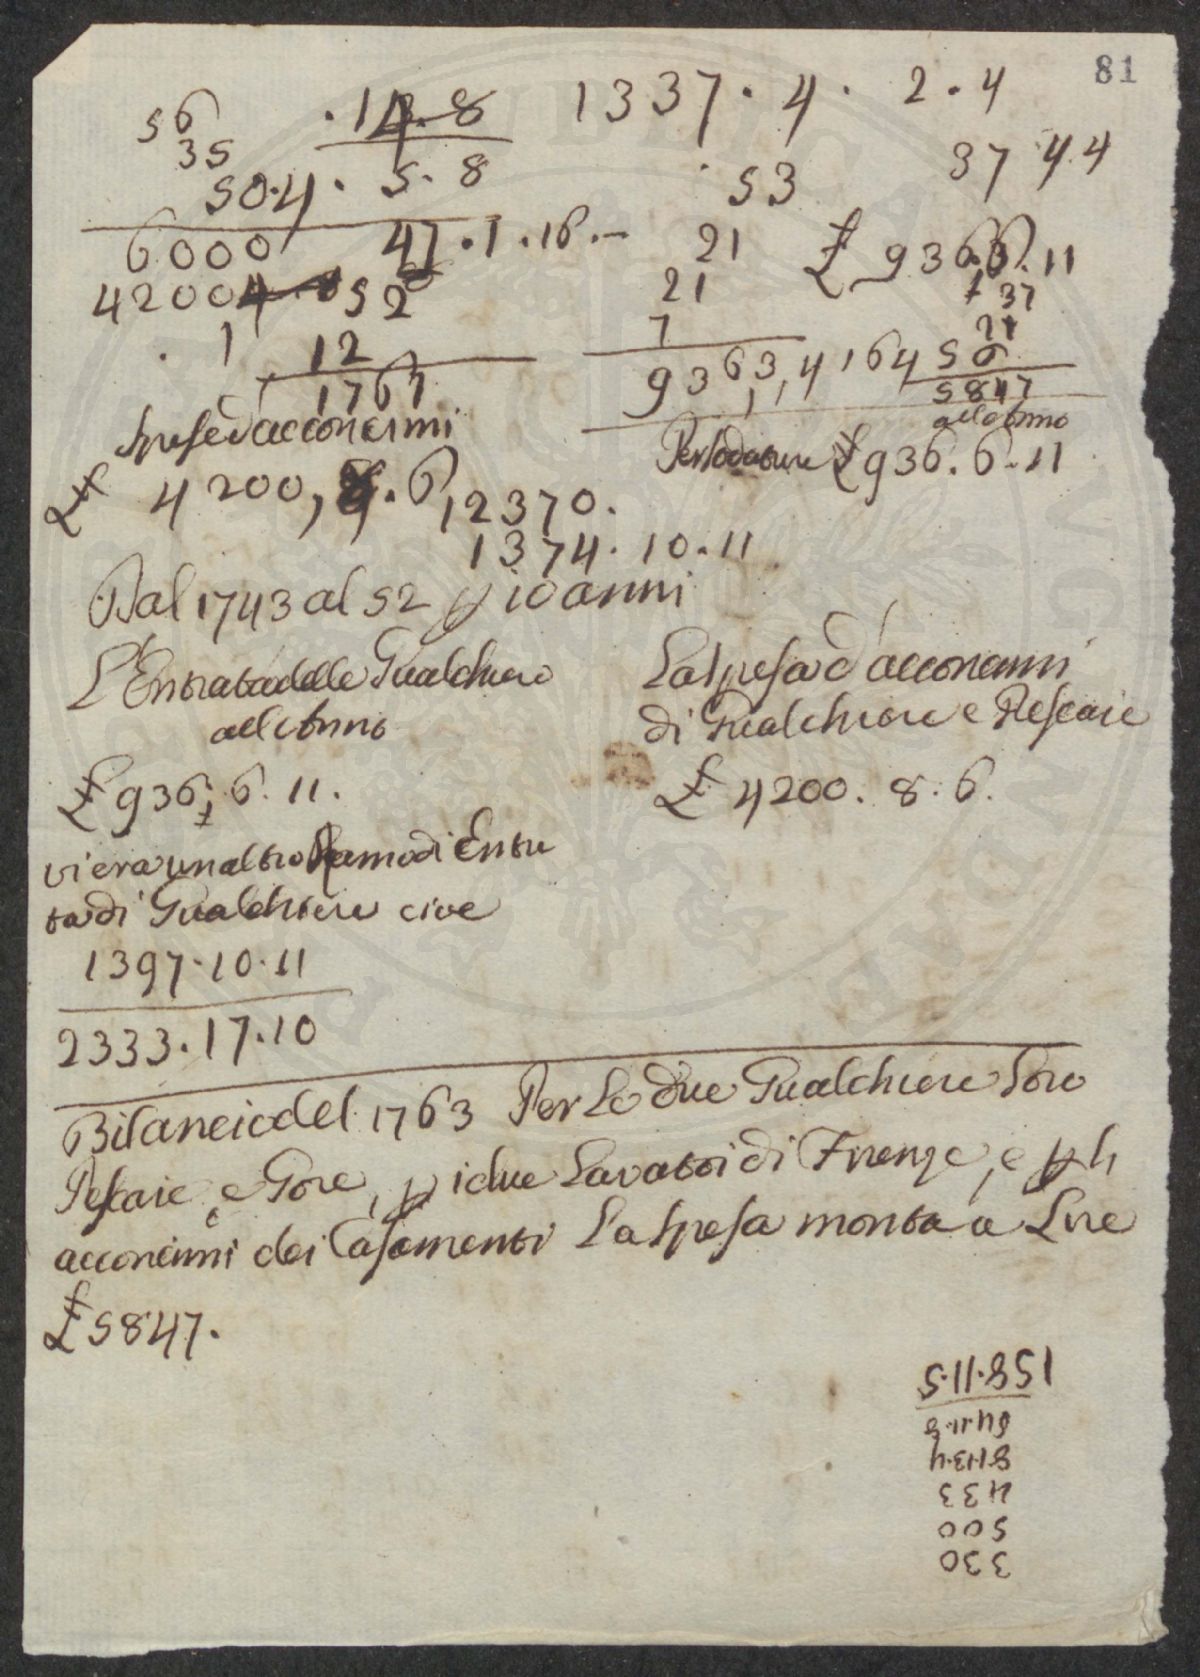 81
56
35
50.4. 5.8
.14.8
1337. 4. 2.4
53
37 4.4
6000
47.1.16.-
21
£ 936.6.11
42004
52
21
37
. 1
12
7
21
1767
9363,4164
56
5847
Spese d'acconcimi
all Anno
£ 4200, 8.6, 2370.
£ 936.6.11
1374.10.11
Dal 1743 al 52 p 10 anni
L'Entrata delle Gualchiere
all Anno
£ 936.6.11.
La spesa d'acconcimi
di Gualchiere e Pescaie
£ 4200. 8. 6.
vi era un altro Ramo di Entra
ta di Gualchiere cioe
1397.10.11
2333.17.10
Bilancio del 1763 Per Le due Gualchiere Loro
Pescaie, e Gore, p i due Lavatoi di Firenze, e p gli
acconcimi dei Casamenti La spesa monta a Lire
£ 5847.
330
500
433
8.13.4
158.11.5